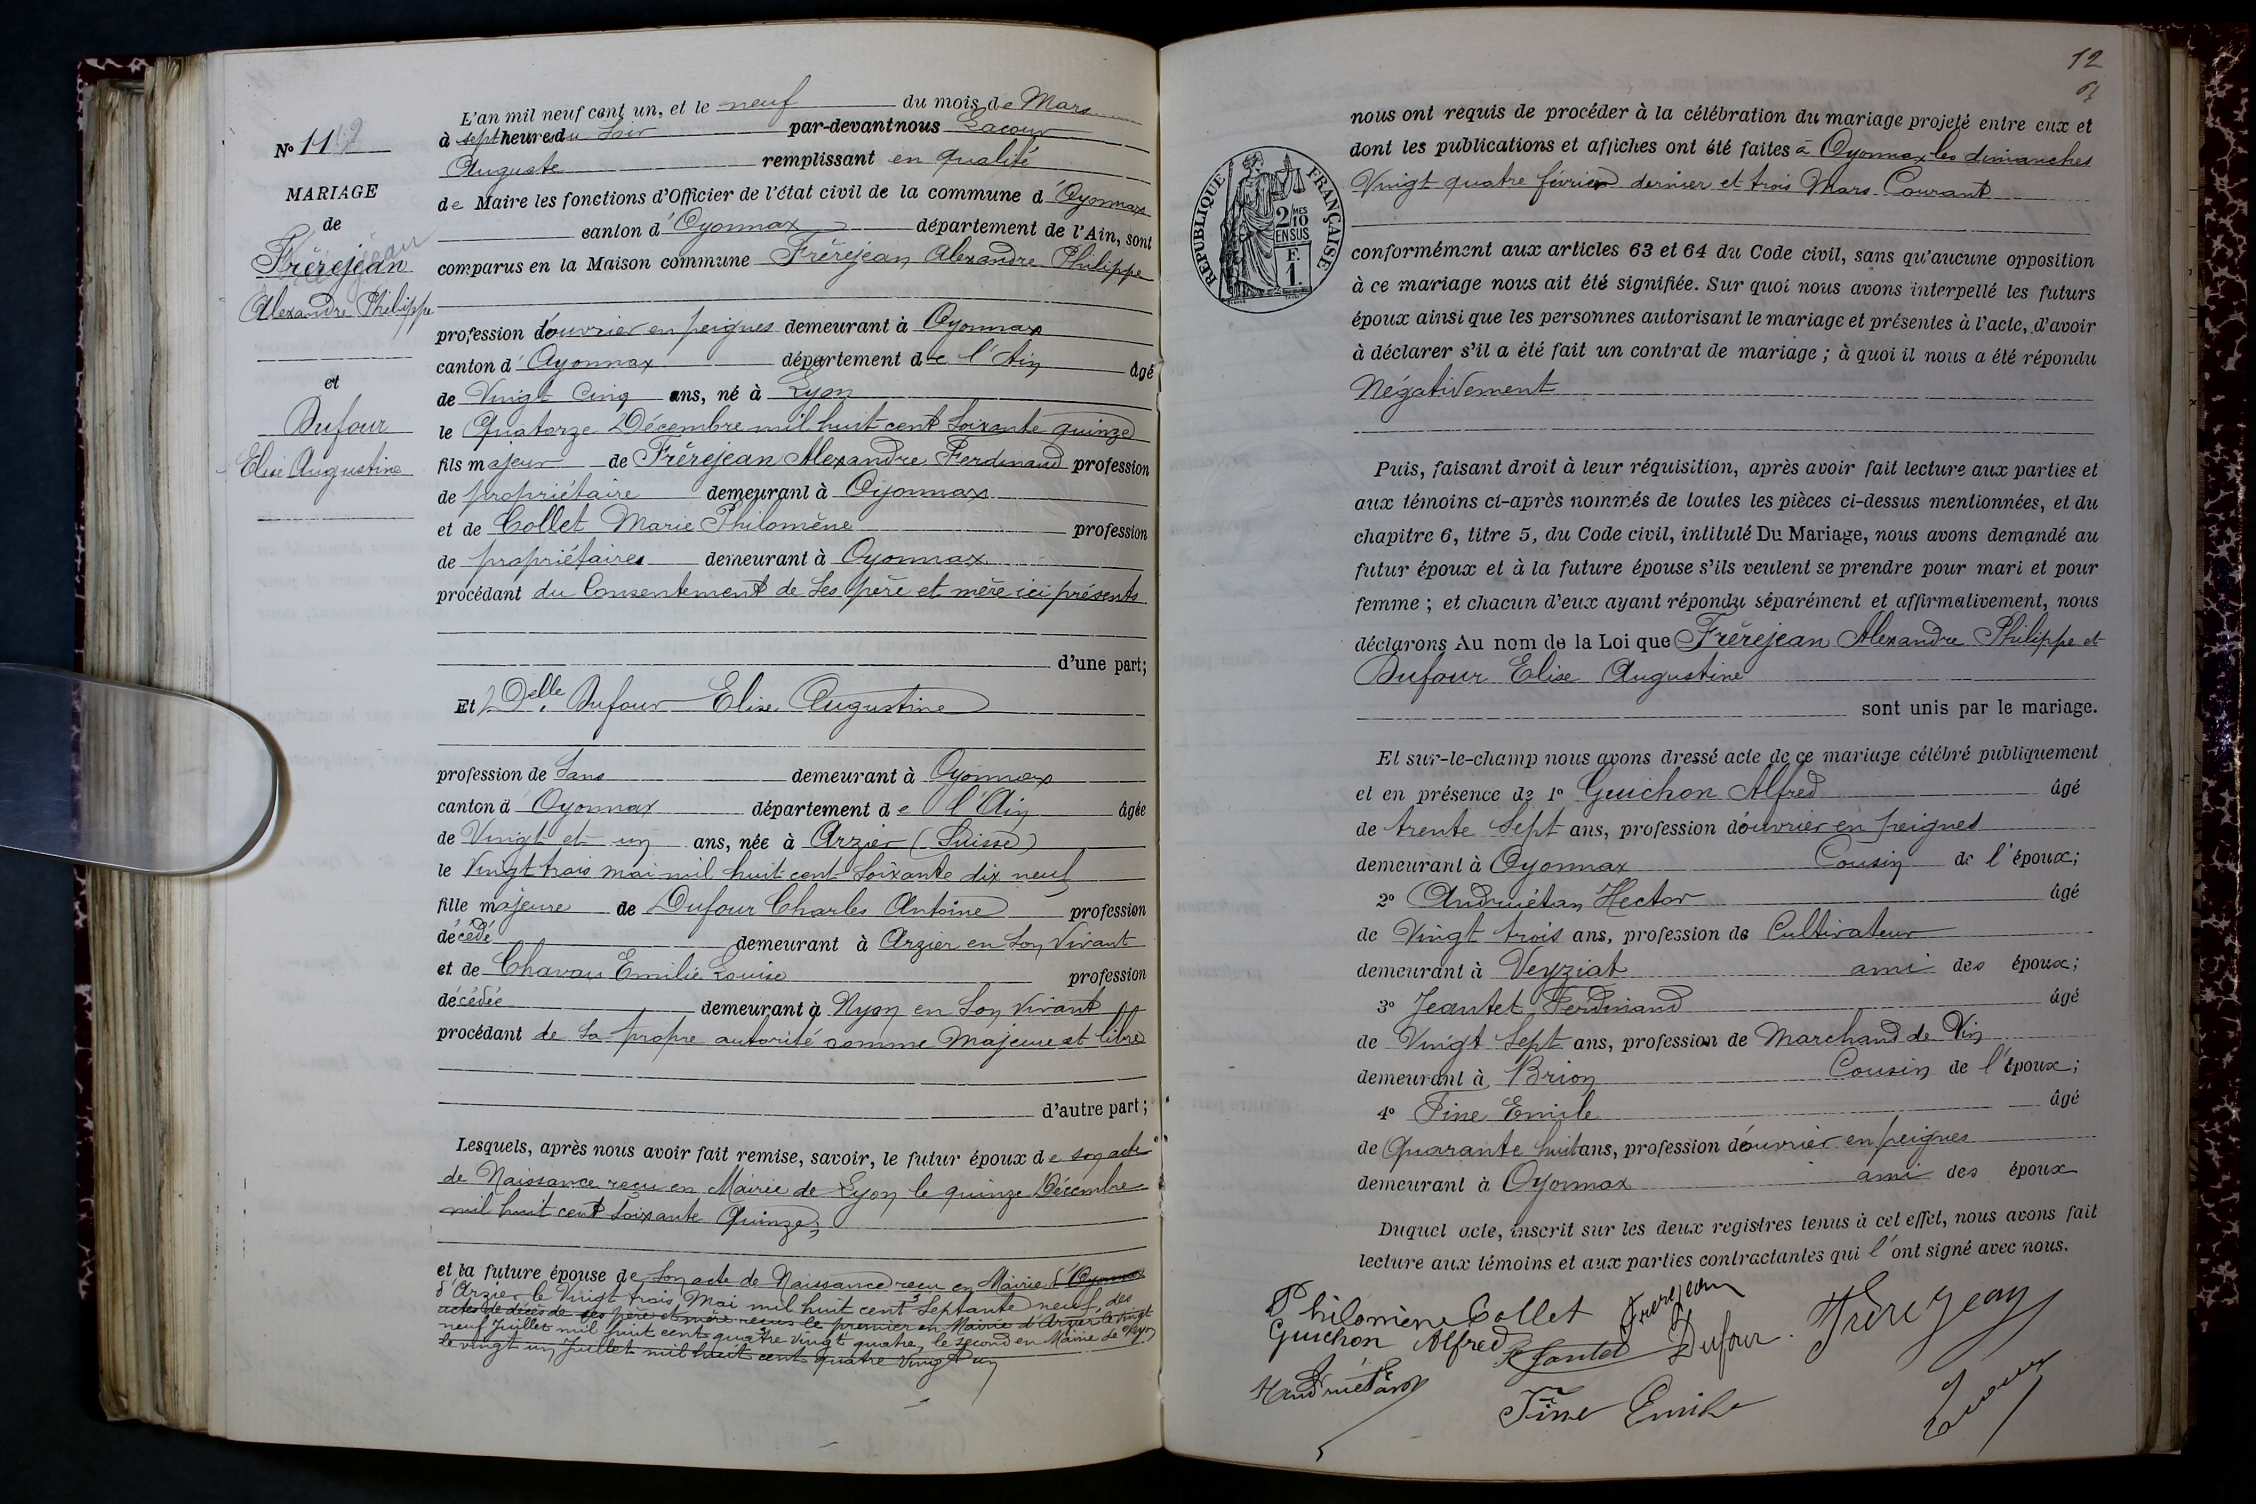 N° 11
MARIAGE
de
Frèrejean
Alexandre Philippe
et
Dufour
Elise Augustine
L'an mil neuf cent un, et le neuf du mois de Mars
à sept heure du Soir par-devant nous Lacour
Auguste remplissant en qualité
de Maire les fonctions d'Officier de l'état civil de la commune d'Oyonnax
canton d'Oyonnax département de l'Ain, sont
comparus en la Maison commune Frèrejean Alexandre Philippe
profession d'ouvrier en peignes demeurant à Oyonnax
canton d'Oyonnax département de l'Ain âgé
de Vingt Cinq ans, né à Lyon
le Quatorze Décembre mil huit cent Soixante quinze
fils majeur de Frèrejean Alexandre Ferdinand profession
de propriétaire demeurant à Oyonnax
et de Collet Marie Philomène profession
de propriétaires demeurant à Oyonnax
procédant du Consentement de Ses père et mère ici présents
d'une part;
Et Delle Dufour Elise Augustine
profession de Sans demeurant à Oyonnax
canton d'Oyonnax département de l'Ain âgée
de Vingt et un ans, née à Arzier (Suisse)
le Vingt trois mai mil huit cent Soixante dix neuf
fille majeure de Dufour Charles Antoine profession
décédé demeurant à Arzier en Son Vivant
et de Chavan Emilie Louise profession
décédée demeurant à Nyon en Son Vivant
procédant de Sa propre autorité comme Majeure et libre
d'autre part;
Lesquels, après nous avoir fait remise, savoir, le futur époux de son acte
de Naissance reçu en Mairie de Lyon le quinze Décembre
mil huit cent Soixante Quinze,
et la future épouse de Son acte de Naissance reçu en Mairie d'Oyonnax
d'Arzier le Vingt trois Mai mil huit cent Septante neuf, des
actes de décès de ses père et mère reçus le premier en Mairie d'Arzier le vingt
neuf Juillet mil huit cent quatre vingt quatre, le second en Mairie de Nyon
le vingt un Juillet mil huit cent quatre vingt un
12
RÉPUBLIQUE FRANÇAISE
2/10 MES
EN SUS
F.
1.
nous ont requis de procéder à la célébration du mariage projeté entre eux et
dont les publications et affiches ont été faites à Oyonnax les dimanches
Vingt quatre février dernier et trois Mars Courant
conformément aux articles 63 et 64 du Code civil, sans qu'aucune opposition
à ce mariage nous ait été signifiée. Sur quoi nous avons interpellé les futurs
époux ainsi que les personnes autorisant le mariage et présentes à l'acte, d'avoir
à déclarer s'il a été fait un contrat de mariage; à quoi il nous a été répondu
Négativement
Puis, faisant droit à leur réquisition, après avoir fait lecture aux parties et
aux témoins ci-après nommés de toutes les pièces ci-dessus mentionnées, et du
chapitre 6, titre 5, du Code civil, intitulé Du Mariage, nous avons demandé au
futur époux et à la future épouse s'ils veulent se prendre pour mari et pour
femme; et chacun d'eux ayant répondu séparément et affirmativement, nous
déclarons Au nom de la Loi que Frèrejean Alexandre Philippe et
Dufour Elise Augustine
sont unis par le mariage.
Et sur-le-champ nous avons dressé acte de ce mariage célébré publiquement
et en présence de 1° Guichon Alfred âgé
de trente Sept ans, profession d'ouvrier en peignes
demeurant à Oyonnax Cousin de l'époux;
2° Andruétan Hector âgé
de Vingt trois ans, profession de Cultivateur
demeurant à Veyziat ami des époux;
3° Jeantet Ferdinand âgé
de Vingt Sept ans, profession de Marchand de Vin
demeurant à Brion Cousin de l'époux;
4° Fine Emile âgé
de Quarante huit ans, profession d'ouvrier en peignes
demeurant à Oyonnax ami des époux
Duquel acte, inscrit sur les deux registres tenus à cet effet, nous avons fait
lecture aux témoins et aux parties contractantes qui l'ont signé avec nous.
Philomène Collet Frerejean
Guichon Alfred Jantet Dufour Frerejean
Fine Emile